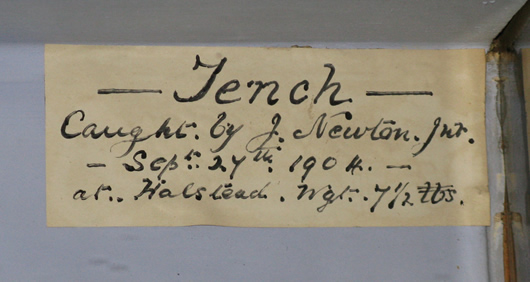 — Tench —
Caught. by J. Newton. Jnr.
- Sept. 27th. 1904. -
at.. Halstead. Wgt. 7 1/2 lbs.